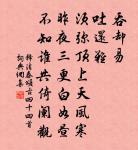 吞却易
吐還難
須弥頂上天風寒
昨夜三更白如
不知誰共倚闌觀
釋法泰頌古四十四首
詞典網集